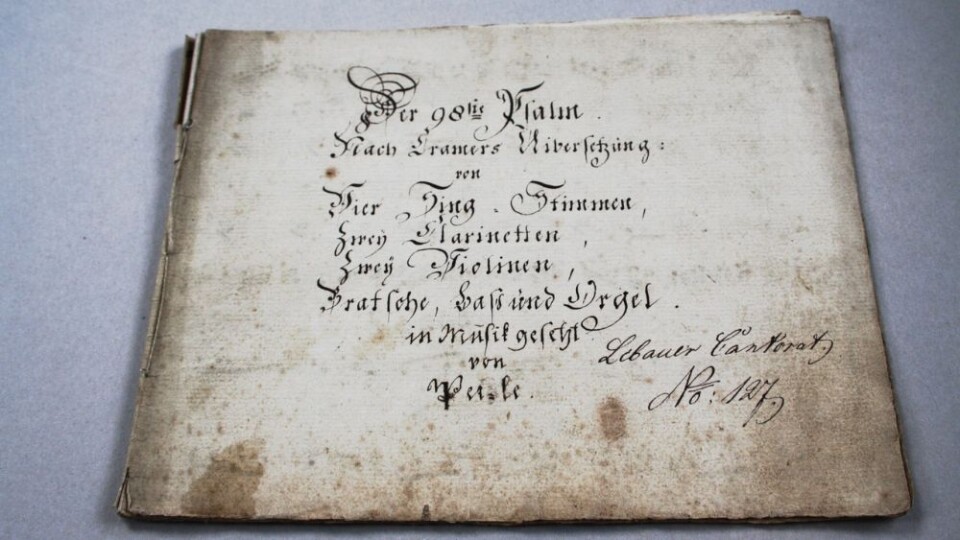 Der 98ste Psalm.
Nach Cramers Uibersetzung:
von
Vier Sing-Stimmen,
Zweÿ Clarinetten,
Zweÿ Violinen,
Bratsche, Baß und Orgel.
in Musik gesetzt
von
Lebauer Cantorat
No: 127